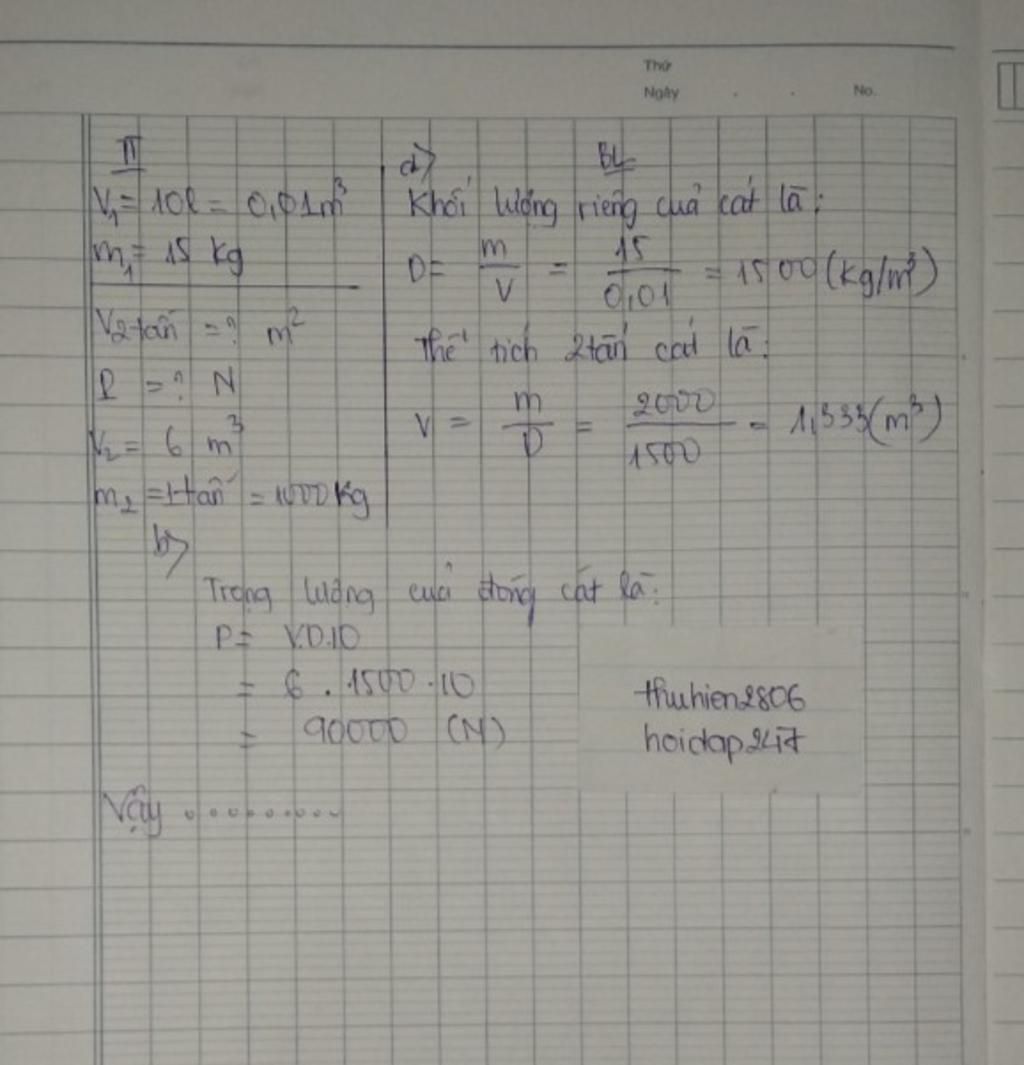 Thứ
Ngày . . No.
II
V₁ = 10l = 0,01m³
m₁ = 15 kg
V2tấn = ? m²
P = ? N
V₂ = 6 m³
m₂ = 1tấn = 1000kg
a>
BL
Khối lượng riêng của cát là:
D = m/V = 15/0,01 = 1500 (kg/m³)
Thể tích 2tấn cát là:
V = m/D = 2000/1500 = 1,333(m³)
b>
Trọng lượng của đống cát là:
P = V.D.10
= 6 . 1500 . 10
= 90000 (N)
thuhien2806
hoidap247
Vậy .........